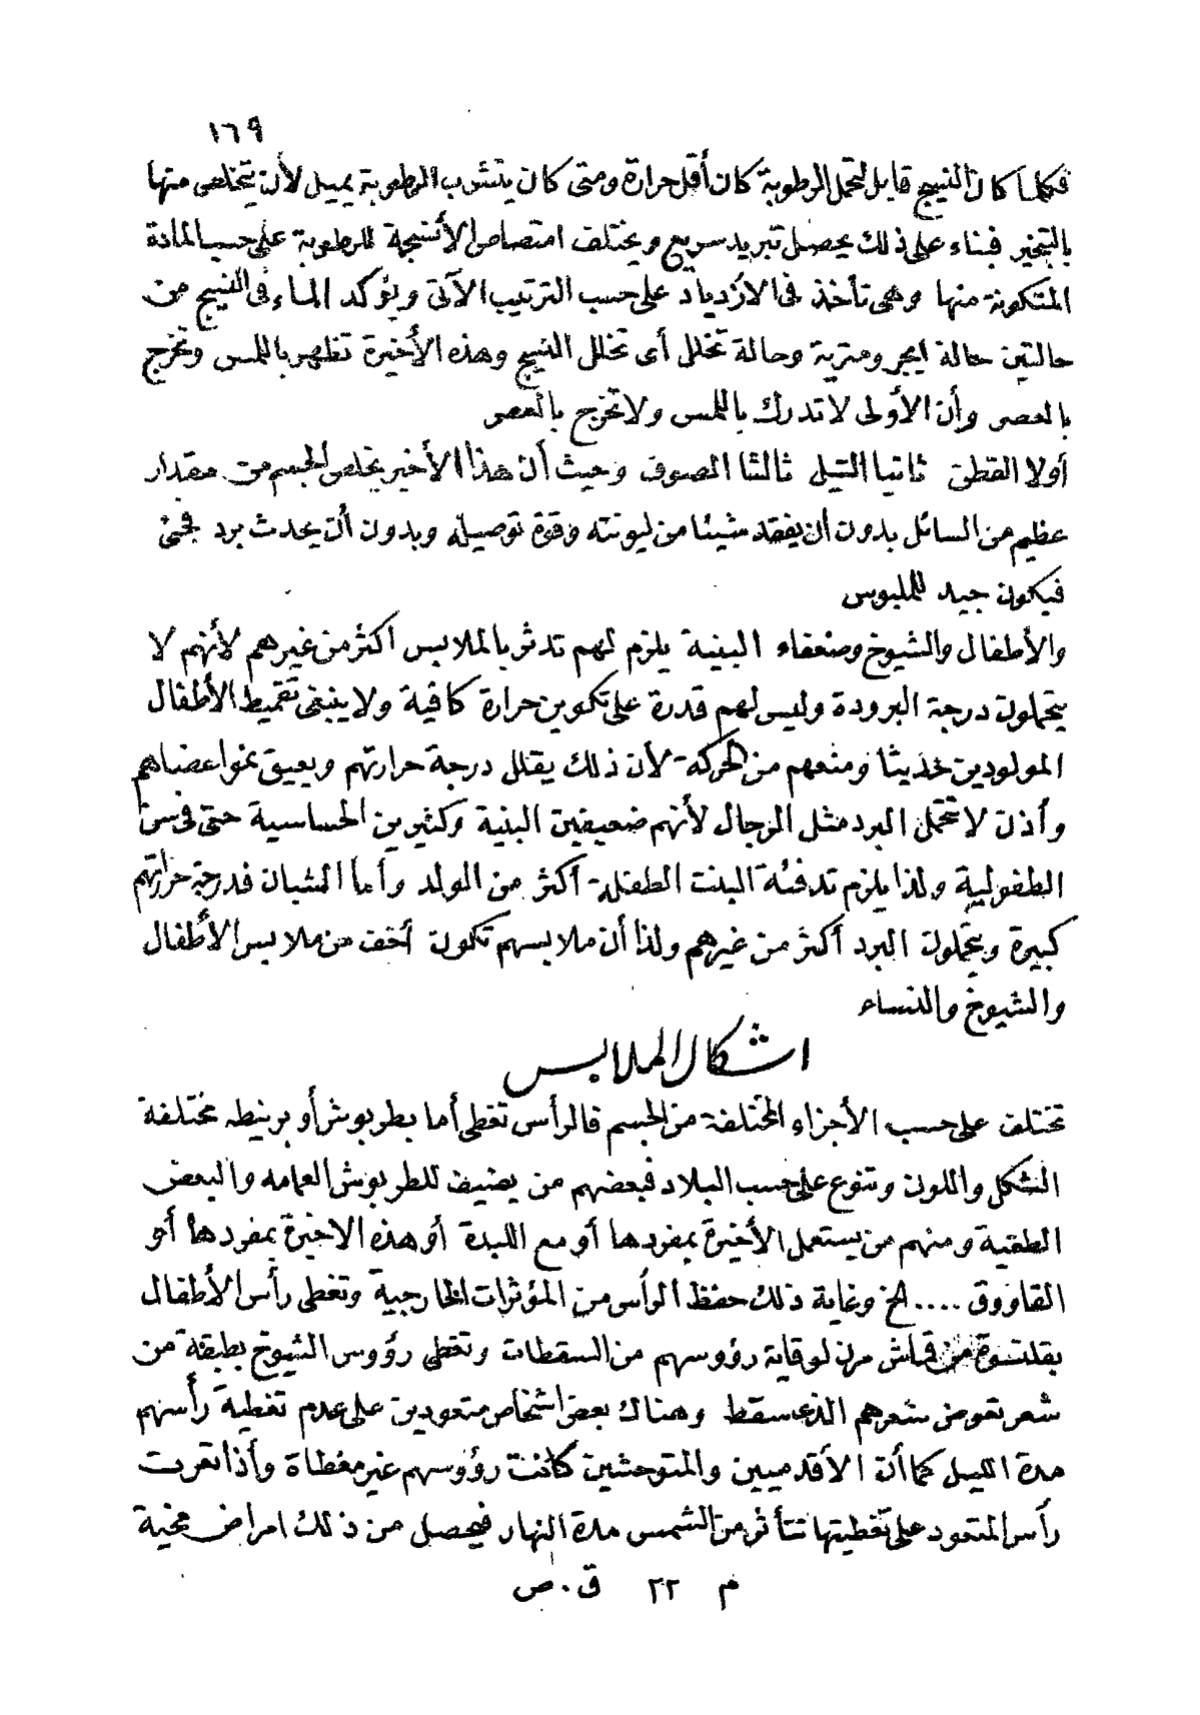 ١٦٩
فكلما كان النسيج قابل لتحمل الرطوبة كان أقل حرارة ومتى كان يتشرب الرطوبة يميل لأن يتخلص منها
بالتبخير فبناء على ذلك يحصل تبريد سريع ويختلف امتصاص الأنسجة للرطوبة على حسب المادة
المتكونة منها وهى تأخذ فى الازدياد على حسب الترتيب الآتى ويؤكد الماء فى النسيج من
حالتين حالة ايجرومترية وحالة تخلل أى تخلل النسيج وهذه الأخيرة تظهر باللمس وتخرج
بالعصر وأن الأولى لا تدرك باللمس ولا تخرج بالعصر
أولا القطن ثانيا التيل ثالثا الصوف وحيث أن هذا الأخير يخلص الجسم من مقدار
عظيم من السائل بدون أن يفقد شيئا من ليونته وقوة توصيله وبدون أن يحدث برد فجئى
فيكون جيد للملبوس
والأطفال والشيوخ وضعفاء البنية يلزم لهم تدثر بالملابس أكثر من غيرهم لأنهم لا
يتحملون درجة البرودة وليس لهم قدرة على تكوين حرارة كافية ولا ينبغى تقميط الأطفال
المولودين حديثا ومنعهم من الحركة لأن ذلك يقلل درجة حرارتهم ويعيق نمو اعضاهم
وأذن لا تتحمل البرد مثل الرجال لأنهم ضعيفين البنية وكثيرين الحساسية حتى فى سن
الطفولية ولذا يلزم تدفئة البنت الطفلة أكثر من الولد وأما الشبان فدرجة حرارتهم
كبيرة ويتحملون البرد أكثر من غيرهم ولذا أن ملابسهم تكون أخف من ملابس الأطفال
والشيوخ والنساء
اشكال الملابس
تختلف على حسب الأجزاء المختلفة من الجسم فالرأس تغطى أما بطربوش أو برنيطه مختلفة
الشكل واللون وتتنوع على حسب البلاد فبعضهم من يضيف للطربوش العمامه والبعض
الطقية ومنهم من يستعمل الأخيرة بمفردها أو مع اللبدة أو هذه الاخيرة بمفردها أو
القاووق .... الخ وغاية ذلك حفظ الرأس من المؤثرات الخارجية وتغطى رأس الأطفال
بقلنسوة من قماش مرن لوقاية رؤوسهم من السقطات وتغطى رؤوس الشيوخ بطبقة من
شعر تعوض شعرهم الذى سقط وهناك بعض اشخاص متعودين على عدم تغطية رأسهم
مدة الليل كما أن الأقدميين والمتوحشين كانت رؤوسهم غير مغطاة وأذا تعرت
رأس المتعود على تغطيتها تتأثر من الشمس مدة النهار فيحصل من ذلك امراض مخية
م ٢٢ ق . ص